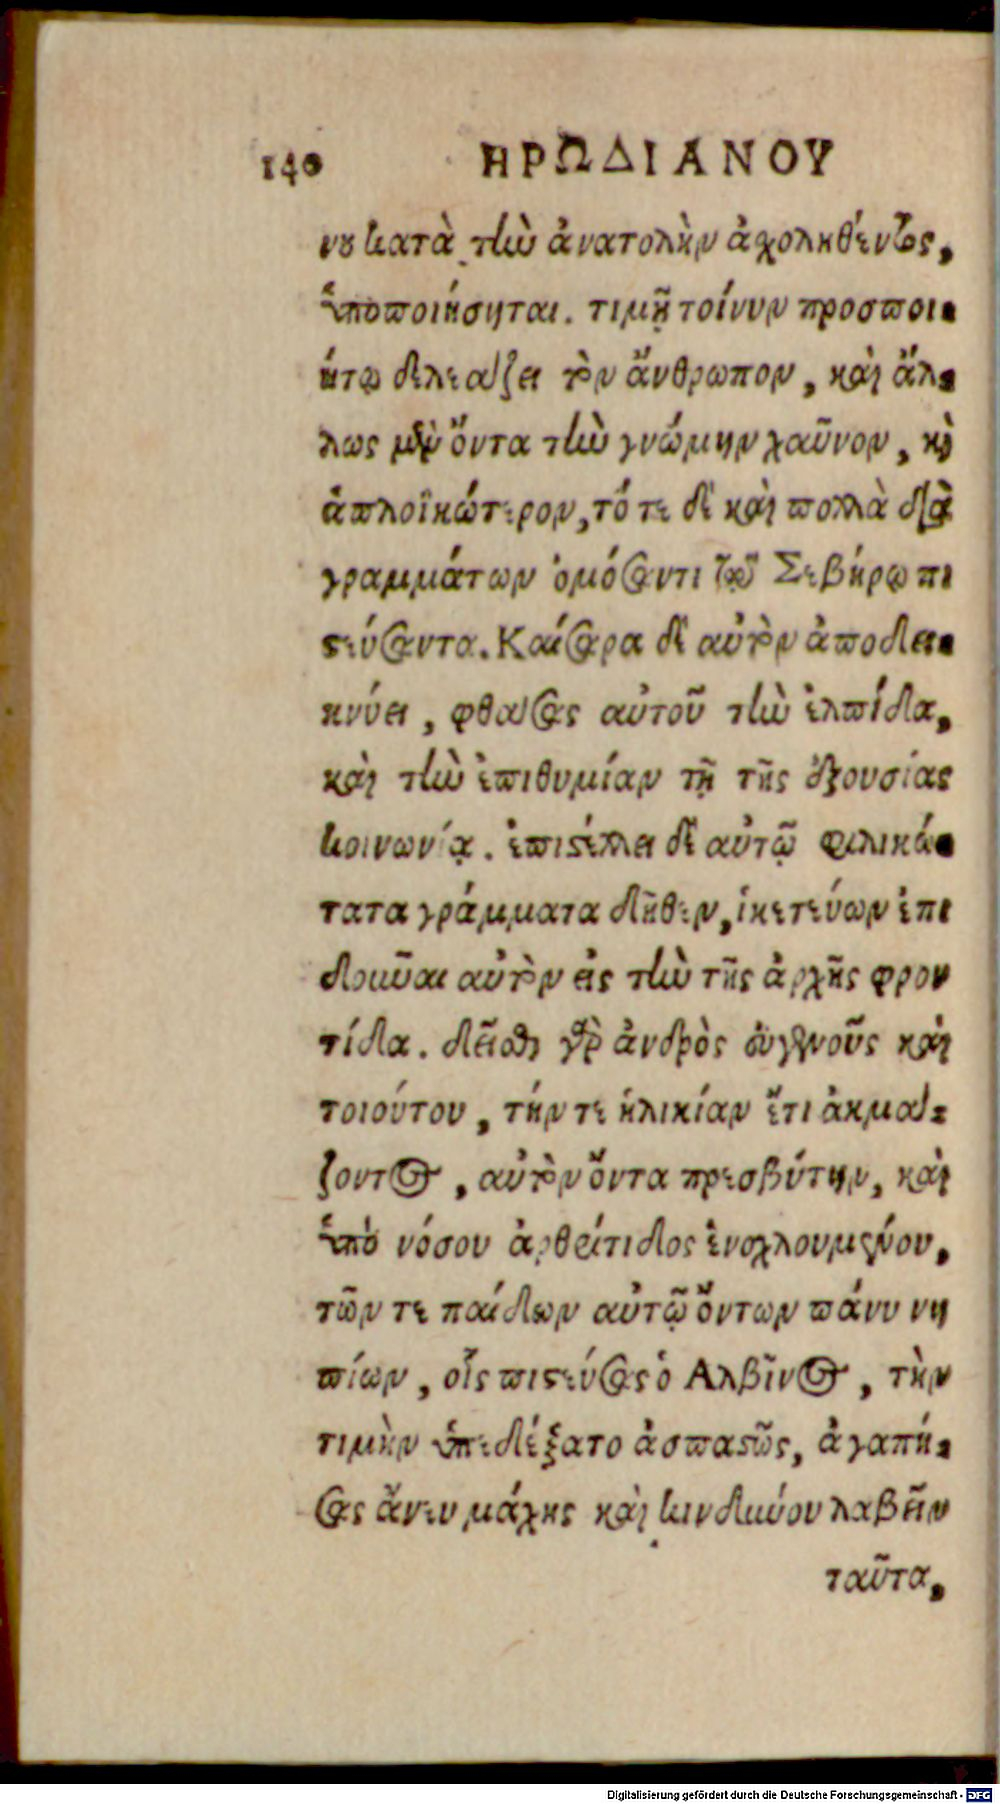 140 ΗΡΩΔΙΑΝΟΥ
νου κατὰ τὴν ἀνατολὴν ἀσχοληθέντος,
ὑποποιήσηται. τιμῇ τοίνυν προσποι-
ήτῳ δελεάζει τὸν ἄνθρωπον, καὶ ἄλ-
λως μὲν ὄντα τὴν γνώμην χαῦνον, καὶ
ἁπλοϊκώτερον, τό τε δὲ καὶ πολλὰ διὰ
γραμμάτων ὀμόσαντι τῷ Σεβήρῳ πι
στεύσαντα. Καίσαρα δὲ αὐτὸν ἀποδει-
κνύει, φθάσας αὐτοῦ τὴν ἐλπίδα,
καὶ τὴν ἐπιθυμίαν τῇ τῆς ἐξουσίας
κοινωνίᾳ. ἐπιστέλλει δὲ αὐτῷ φιλικώ-
τατα γράμματα δῆθεν, ἱκετεύων ἐπι
δοῦναι αὐτὸν εἰς τὴν τῆς ἀρχῆς φρον
τίδα. δεῖσθαι γὰρ ἀνδρὸς εὐγενοῦς καὶ
τοιούτου, τήν τε ἡλικίαν ἔτι ἀκμά-
ζοντος, αὐτὸν ὄντα πρεσβύτην, καὶ
ὑπὸ νόσου ἀρθρίτιδος ἐνοχλουμένου,
τῶν τε παίδων αὐτῷ ὄντων πάνυ νη
πίων, οἷς πιστεύσας ὁ Αλβῖνος, τὴν
τιμὴν ὑπεδέξατο ἀσπαστῶς, ἀγαπή-
σας ἄνευ μάχης καὶ κινδύνου λαβεῖν
ταῦτα,
Digitalisierung gefördert durch die Deutsche Forschungsgemeinschaft - DFG